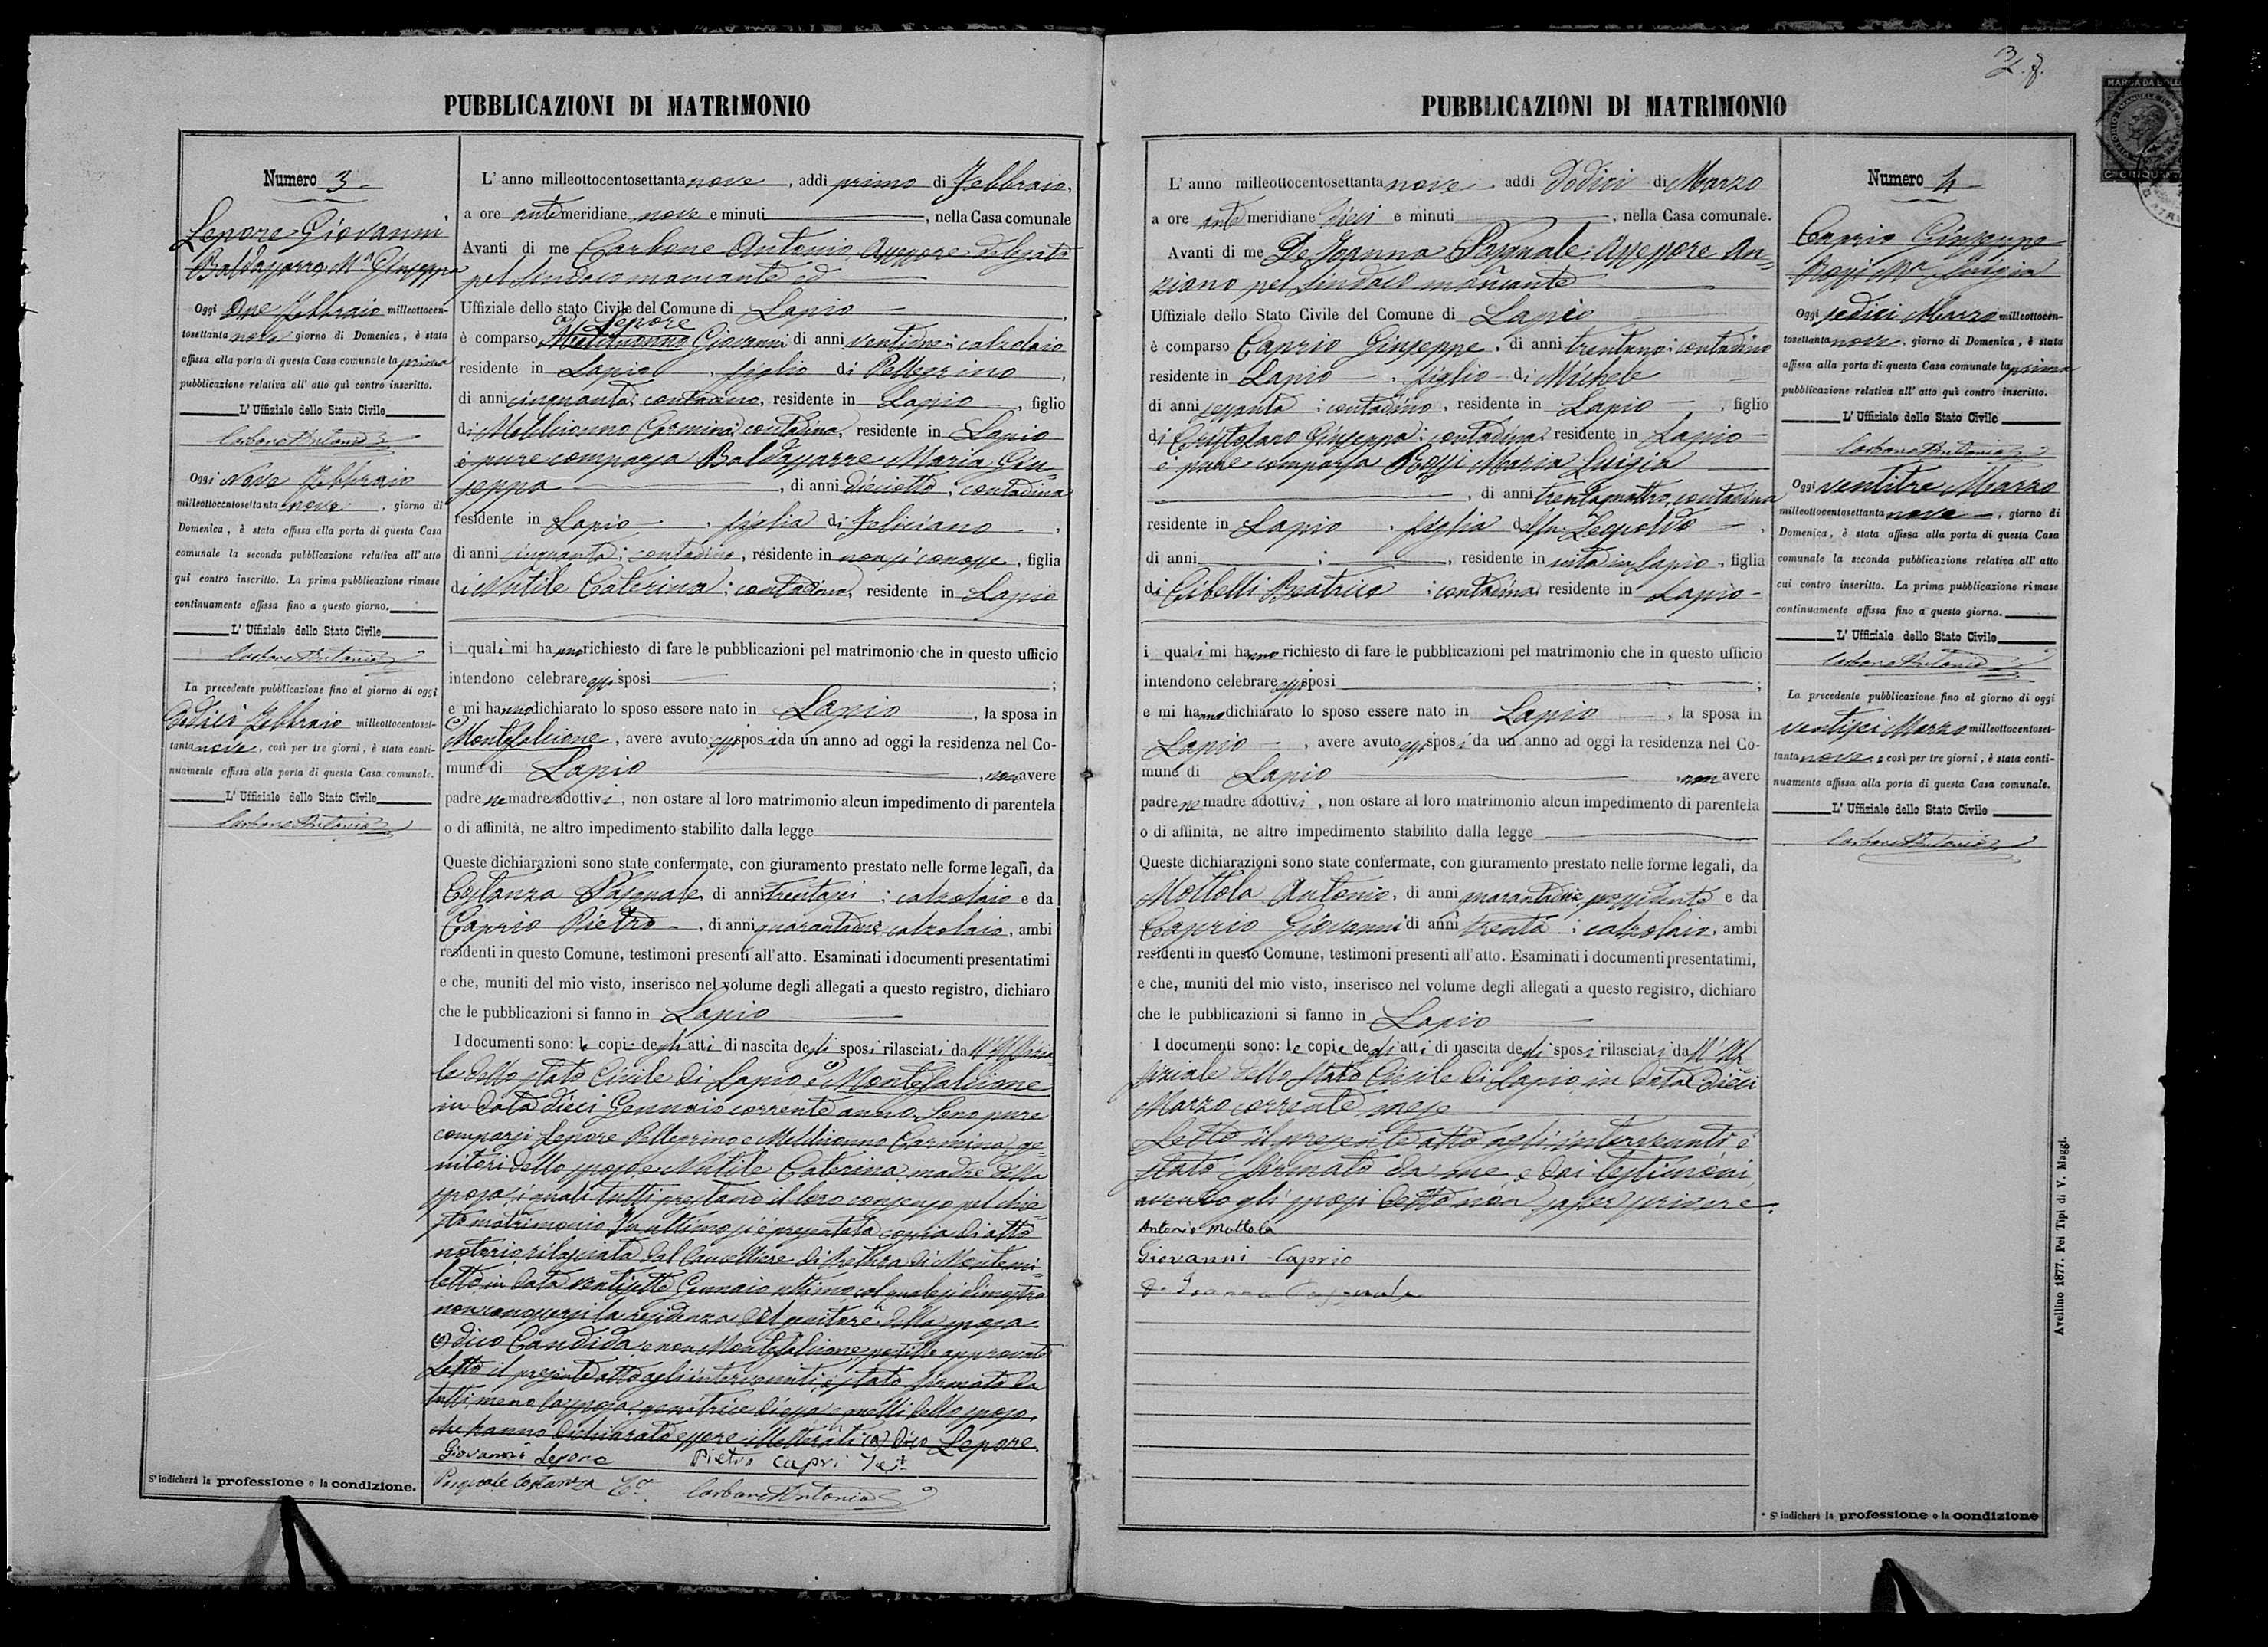 PUBBLICAZIONI DI MATRIMONIO
Numero 3
Lepore Giovanni
Baldassarre Ma Giuseppa
Oggi Due Febbraio milleottocen-
tosettanta nove giorno di Domenica, è stata
affissa alla porta di questa Casa comunale la prima
pubblicazione relativa all' atto quì contro inscritto.
L' Uffiziale dello Stato Civile
Carbone Antonio
Oggi Nove Febbraio
milleottocentosettanta nove, giorno di
Domenica, è stata affissa alla porta di questa Casa
comunale la seconda pubblicazione relativa all' atto
qui contro inscritto. La prima pubblicazione rimase
continuamente affissa fino a questo giorno.
L' Uffiziale dello Stato Civile
Carbone Antonio
La precedente pubblicazione fino al giorno di oggi
Dodici Febbraio milleottocentoset-
tanta nove, così per tre giorni, è stata conti-
nuamente affissa alla porta di questa Casa comunale.
L' Uffiziale dello Stato Civile
Carbone Antonio
S' indicherà la professione o la condizione.
L' anno milleottocentosettanta nove, addi primo di Febbraio,
a ore ante meridiane nove e minuti, nella Casa comunale
Avanti di me Carbone Antonio, Assessore delegato
pel Sindaco mancante ed
Uffiziale dello stato Civile del Comune di Lapio
(a) Lepore
è comparso Melchionno Giovanni di anni ventidue; calzolaio
residente in Lapio, figlio di Pellegrino,
di anni cinquanta; contadino, residente in Lapio, figlio
di Melchionno Carmina; contadina, residente in Lapio
è pure comparsa Baldassarre Maria Giu-
seppa, di anni diciotto; contadina
residente in Lapio, figlia di Feliciano,
di anni cinquanta; contadino, residente in non si conosce, figlia
di Nutile Caterina; contadina, residente in Lapio
i quali mi hanno richiesto di fare le pubblicazioni pel matrimonio che in questo ufficio
intendono celebrare essi sposi;
e mi hanno dichiarato lo sposo essere nato in Lapio, la sposa in
Montefalcione, avere avuto essi sposi da un anno ad oggi la residenza nel Co-
mune di Lapio, non avere
padre ne madre adottivi, non ostare al loro matrimonio alcun impedimento di parentela
o di affinità, ne altro impedimento stabilito dalla legge
Queste dichiarazioni sono state confermate, con giuramento prestato nelle forme legali, da
Costanza Pasquale, di anni trentasei; calzolaio e da
Caprio Pietro, di anni quarantadue; calzolaio, ambi
residenti in questo Comune, testimoni presenti all'atto. Esaminati i documenti presentatimi
e che, muniti del mio visto, inserisco nel volume degli allegati a questo registro, dichiaro
che le pubblicazioni si fanno in Lapio
I documenti sono: le copie degli atti di nascita degli sposi rilasciati dall'Uffizia-
le dello stato Civile di Lapio, e Montefalcione
in data dieci Gennaio corrente anno. Sono pure
comparsi Lepore Pellegrino e Melchionno Carmina, ge-
nitori dello sposo, e Nutile Caterina madre della
sposa, i quali tutti prestano il loro consenso pel chie-
sto matrimonio. In ultimo si è presentata copia di atto
notorio rilasciata dal Cancelliere di Pretura di Montemi-
letto in data ventisette Gennaio ultimo col quale si dimostra
non conoscersi la residenza del genitore della sposa
dico Candida, e non Montefalcione, postille approvate
Letto il presente atto agli intervenuti, è stato firmato da
tutti meno la sposa, genitrice di essa e quelli dello sposo,
che hanno dichiarato essere illetterati (a) Dico Lepore.
Giovanni Lepore Pietro Capri
Pasquale Costanza Carbone Antonio
PUBBLICAZIONI DI MATRIMONIO
L' anno milleottocentosettanta nove addi Dodici di Marzo
a ore ante meridiane dieci e minuti, nella Casa comunale.
Avanti di me De Joanna Pasquale: Assessore An-
ziano pel Sindaco mancante
Uffiziale dello Stato Civile del Comune di Lapio
è comparso Caprio Giuseppe, di anni trentuno; contadino
residente in Lapio, figlio di Michele
di anni sessanta; contadino, residente in Lapio, figlio
di Cristofaro Giuseppa; contadina, residente in Lapio
è pure comparsa Rossi Maria Luigia
, di anni trentaquattro, contadina
residente in Lapio, figlia del fu Leopoldo,
di anni ; , residente in vita in Lapio, figlia
di Cibelli Beatrice; contadina, residente in Lapio
i quali mi hanno richiesto di fare le pubblicazioni pel matrimonio che in questo ufficio
intendono celebrare essi sposi;
e mi hanno dichiarato lo sposo essere nato in Lapio, la sposa in
Lapio, avere avuto essi sposi da un anno ad oggi la residenza nel Co-
mune di Lapio, non avere
padre ne madre adottivi, non ostare al loro matrimonio alcun impedimento di parentela
o di affinità, ne altro impedimento stabilito dalla legge
Queste dichiarazioni sono state confermate, con giuramento prestato nelle forme legali, da
Mottola Antonio, di anni quarantadue, possidente e da
Caprio Giovanni di anni trenta; calzolaio, ambi
residenti in questo Comune, testimoni presenti all'atto. Esaminati i documenti presentatimi,
e che, muniti del mio visto, inserisco nel volume degli allegati a questo registro, dichiaro
che le pubblicazioni si fanno in Lapio
I documenti sono: le copie degli atti di nascita degli sposi rilasciati dall'Uf-
fiziale dello Stato Civile di Lapio in data dieci
Marzo corrente mese
Letto il presente atto agli intervenuti, è
stato firmato da me, e dai testimoni,
avendo gli sposi detto non saper scrivere.
Antonio Mottola
Giovanni Caprio
De Joanna Pasquale
Numero 4
Caprio Giuseppe
Rossi Ma Luigia
Oggi sedici Marzo milleottocen-
tosettanta nove, giorno di Domenica, è stata
affissa alla porta di questa Casa comunale la prima
pubblicazione relativa all' atto quì contro inscritto.
L' Uffiziale dello Stato Civile
Carbone Antonio
Oggi ventitre Marzo
milleottocentosettanta nove, giorno di
Domenica, è stata affissa alla porta di questa Casa
comunale la seconda pubblicazione relativa all' atto
cui contro inscritto. La prima pubblicazione rimase
continuamente affissa fino a questo giorno.
L' Uffiziale dello Stato Civile
Carbone Antonio
La precedente pubblicazione fino al giorno di oggi
ventisei Marzo milleottocentoset-
tanta nove, e così per tre giorni, è stata conti-
nuamente affissa alla porta di questa Casa comunale.
L' Uffiziale dello Stato Civile
Carbone Antonio
* S' indicherà la professione o la condizione
Avellino 1877. Pei Tipi di V. Maggi.
MARCA DA BOLLO